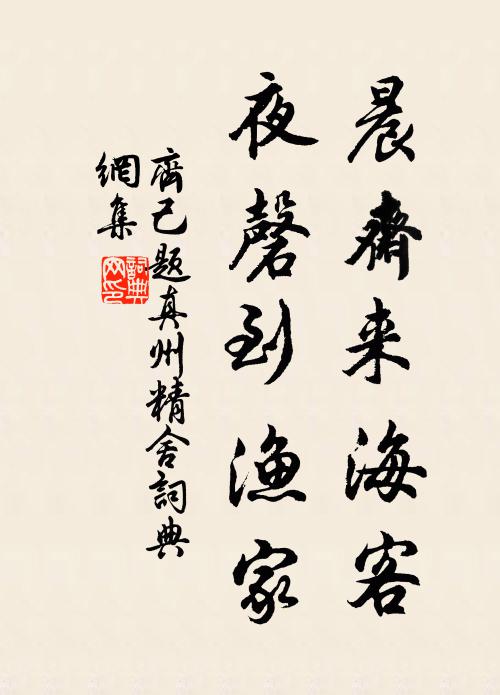 晨齋来海客
夜磬到渔家
齊己題真州精舍詞典
網集
詞典
网印